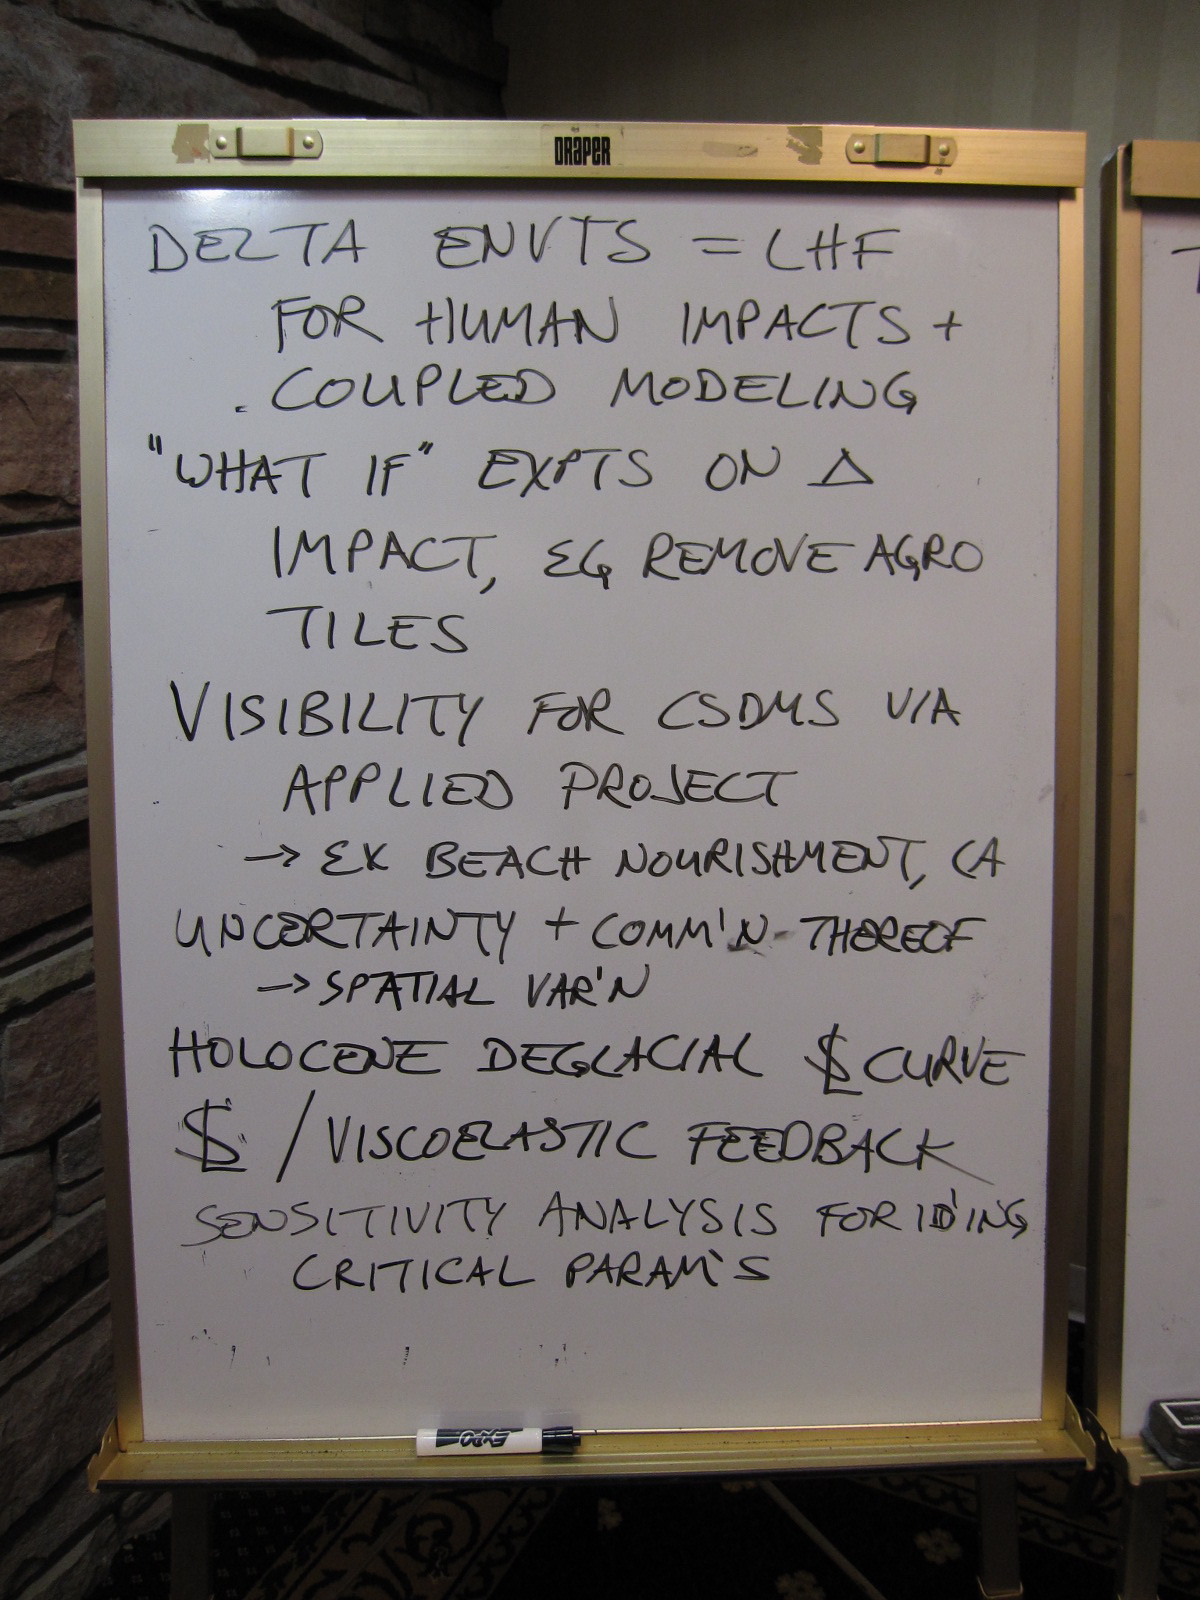 DRAPER
DELTA ENVTS = LHF
FOR HUMAN IMPACTS +
COUPLED MODELING
"WHAT IF" EXPTS ON Δ
IMPACT, EG REMOVE AGRO
TILES
VISIBILITY FOR CSDMS VIA
APPLIED PROJECT
→ EX BEACH NOURISHMENT, CA
UNCERTAINTY + COMM'N THEREOF
→ SPATIAL VAR'N
HOLOCENE DEGLACIAL CURVE
/ VISCOELASTIC FEEDBACK
SENSITIVITY ANALYSIS FOR ID'ING
CRITICAL PARAM'S
EXPO